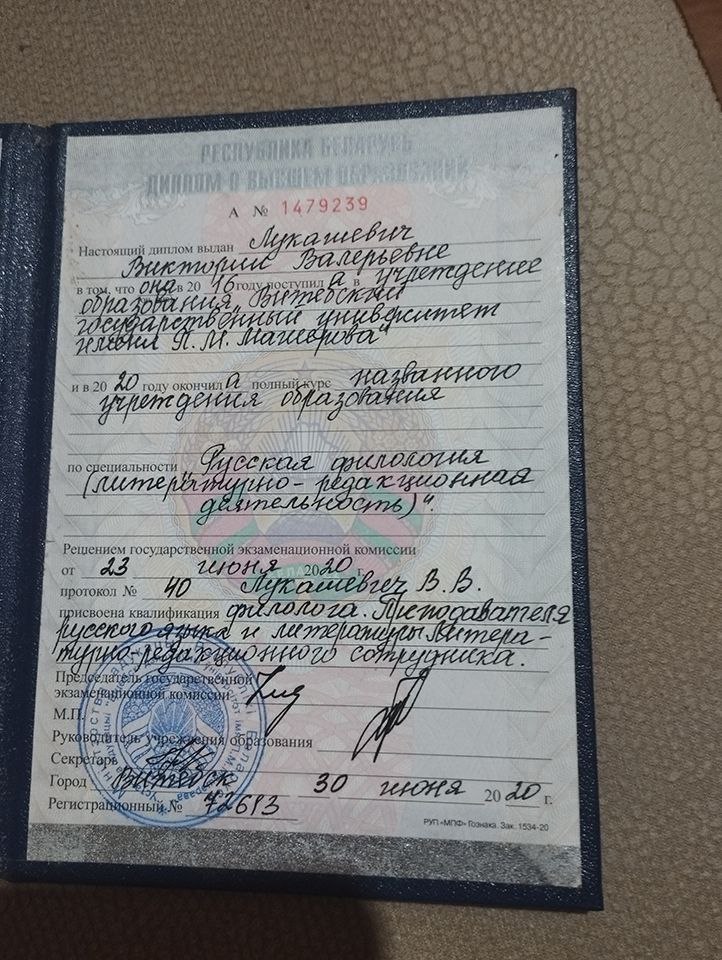 РЕСПУБЛИКА БЕЛАРУСЬ
ДИПЛОМ О ВЫСШЕМ ОБРАЗОВАНИИ
А № 1479239
Настоящий диплом выдан Лукашевич
Виктории Валерьевне
в том, что она в 20 16 году поступила в учреждение
образования "Витебский
государственный университет
имени П.М. Машерова"
и в 20 20 году окончила полный курс названного
учреждения образования
по специальности "Русская филология
(литературно-редакционная
деятельность)".
Решением государственной экзаменационной комиссии
от 23 июня 2020 г.
протокол № 40 Лукашевич В.В.
присвоена квалификация филолога. Преподавателя
русского языка и литературы. Литера-
турно-редакционного сотрудника.
Председатель государственной
экзаменационной комиссии
М.П.
Руководитель учреждения образования
Секретарь
Город Витебск 30 июня 20 20 г.
Регистрационный № 72613
РУП «МПФ» Гознака. Зак. 1534-20